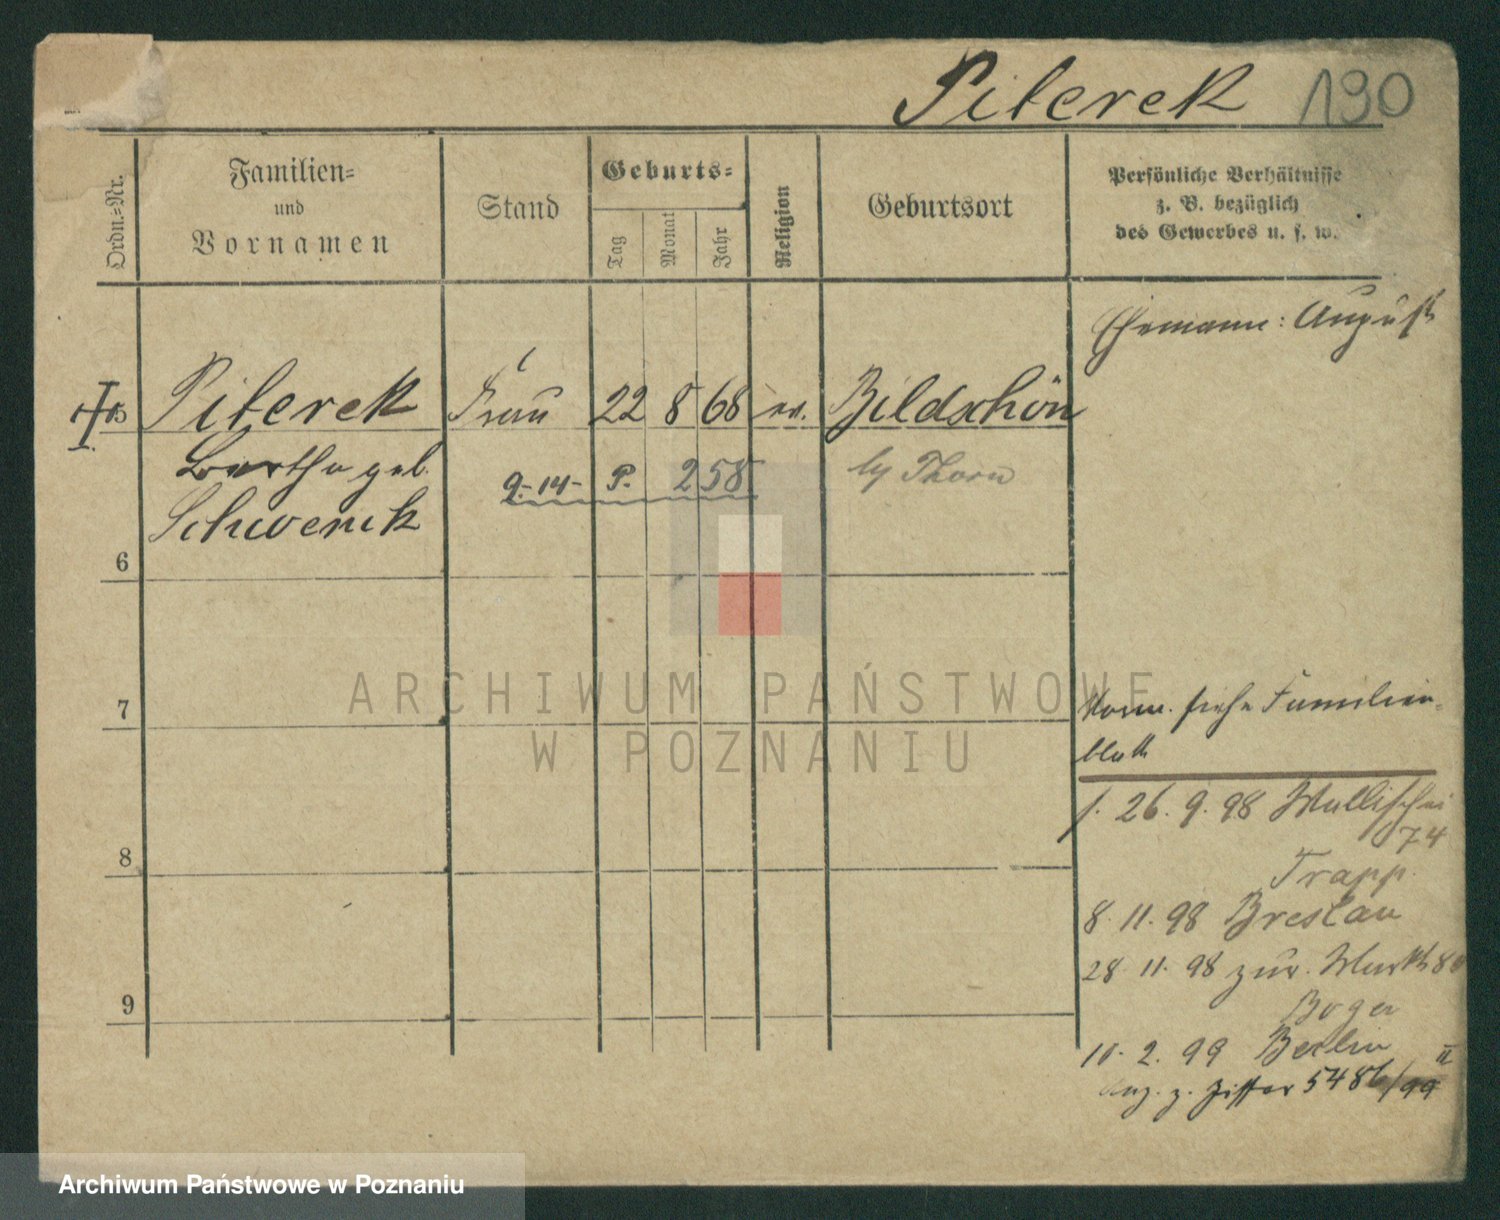 Piterek 190
Ordn.=Nr.
Familien=
und
Vornamen
Stand
Geburts=
Tag
Monat
Jahr
Religion
Geburtsort
Persönliche Verhältnisse
z. B. bezüglich
des Gewerbes u. s. w.
Ehemann: August
Piterek Frau 22 8 68 ev. Bildschön
Bertha geb. 9.-14- P. 258 by Thorn
Schwenk
6
7
8
9
ARCHIWUM PAŃSTWOWE
W POZNANIU
Vorm. siehe Familien=
blatt
1. 26. 9. 98 Wallischei
74
Trapp.
8. 11. 98 Breslau
28. 11. 98 zur. Markt 80
Boger
10. 2. 99 Berlin II
Anz. z. Ziffer 5486/99
Archiwum Państwowe w Poznaniu